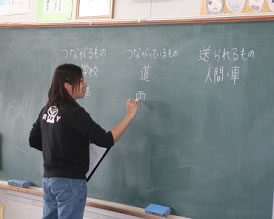 つながるもの
学校
つながっているもの
道
雨
送られるもの
人間・車